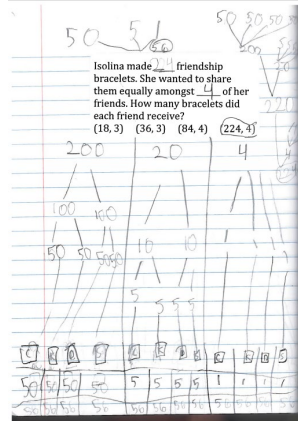 50 51
56
50 50 50 50
200
Isolina made 224 friendship
bracelets. She wanted to share
them equally amongst 4 of her
friends. How many bracelets did
each friend receive?
(18, 3) (36, 3) (84, 4) (224, 4)
220
200 20 4
100 100
50 50 50 50 10 10 1 1 1 1
5 5 5 5
50 50 50 50 5 5 5 5 1 1 1 1
56 56 56 56 56 56 56 56 56 56